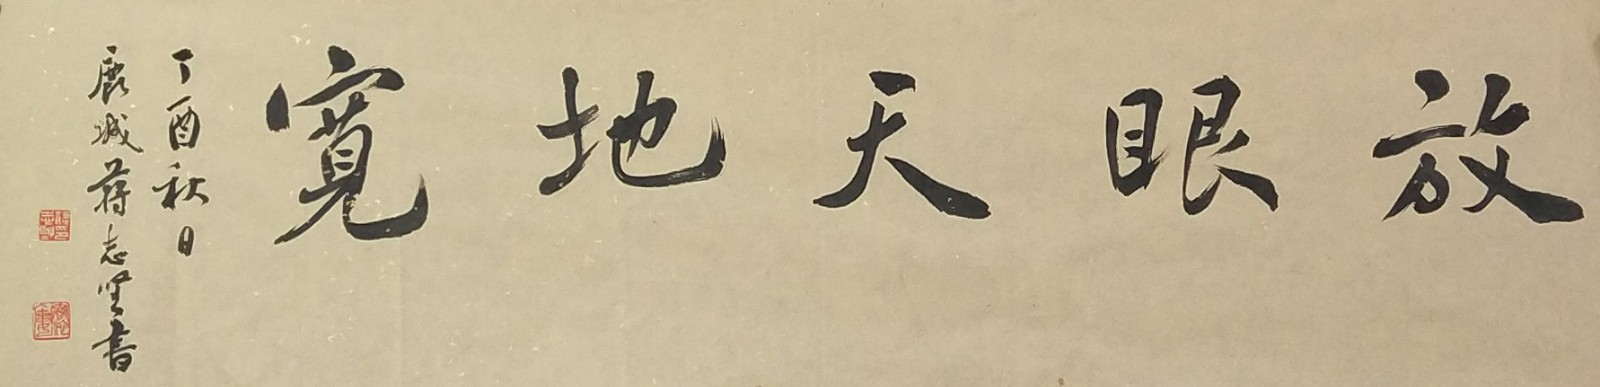 放眼天地寬
丁酉秋日
鹿城蒋志坚書